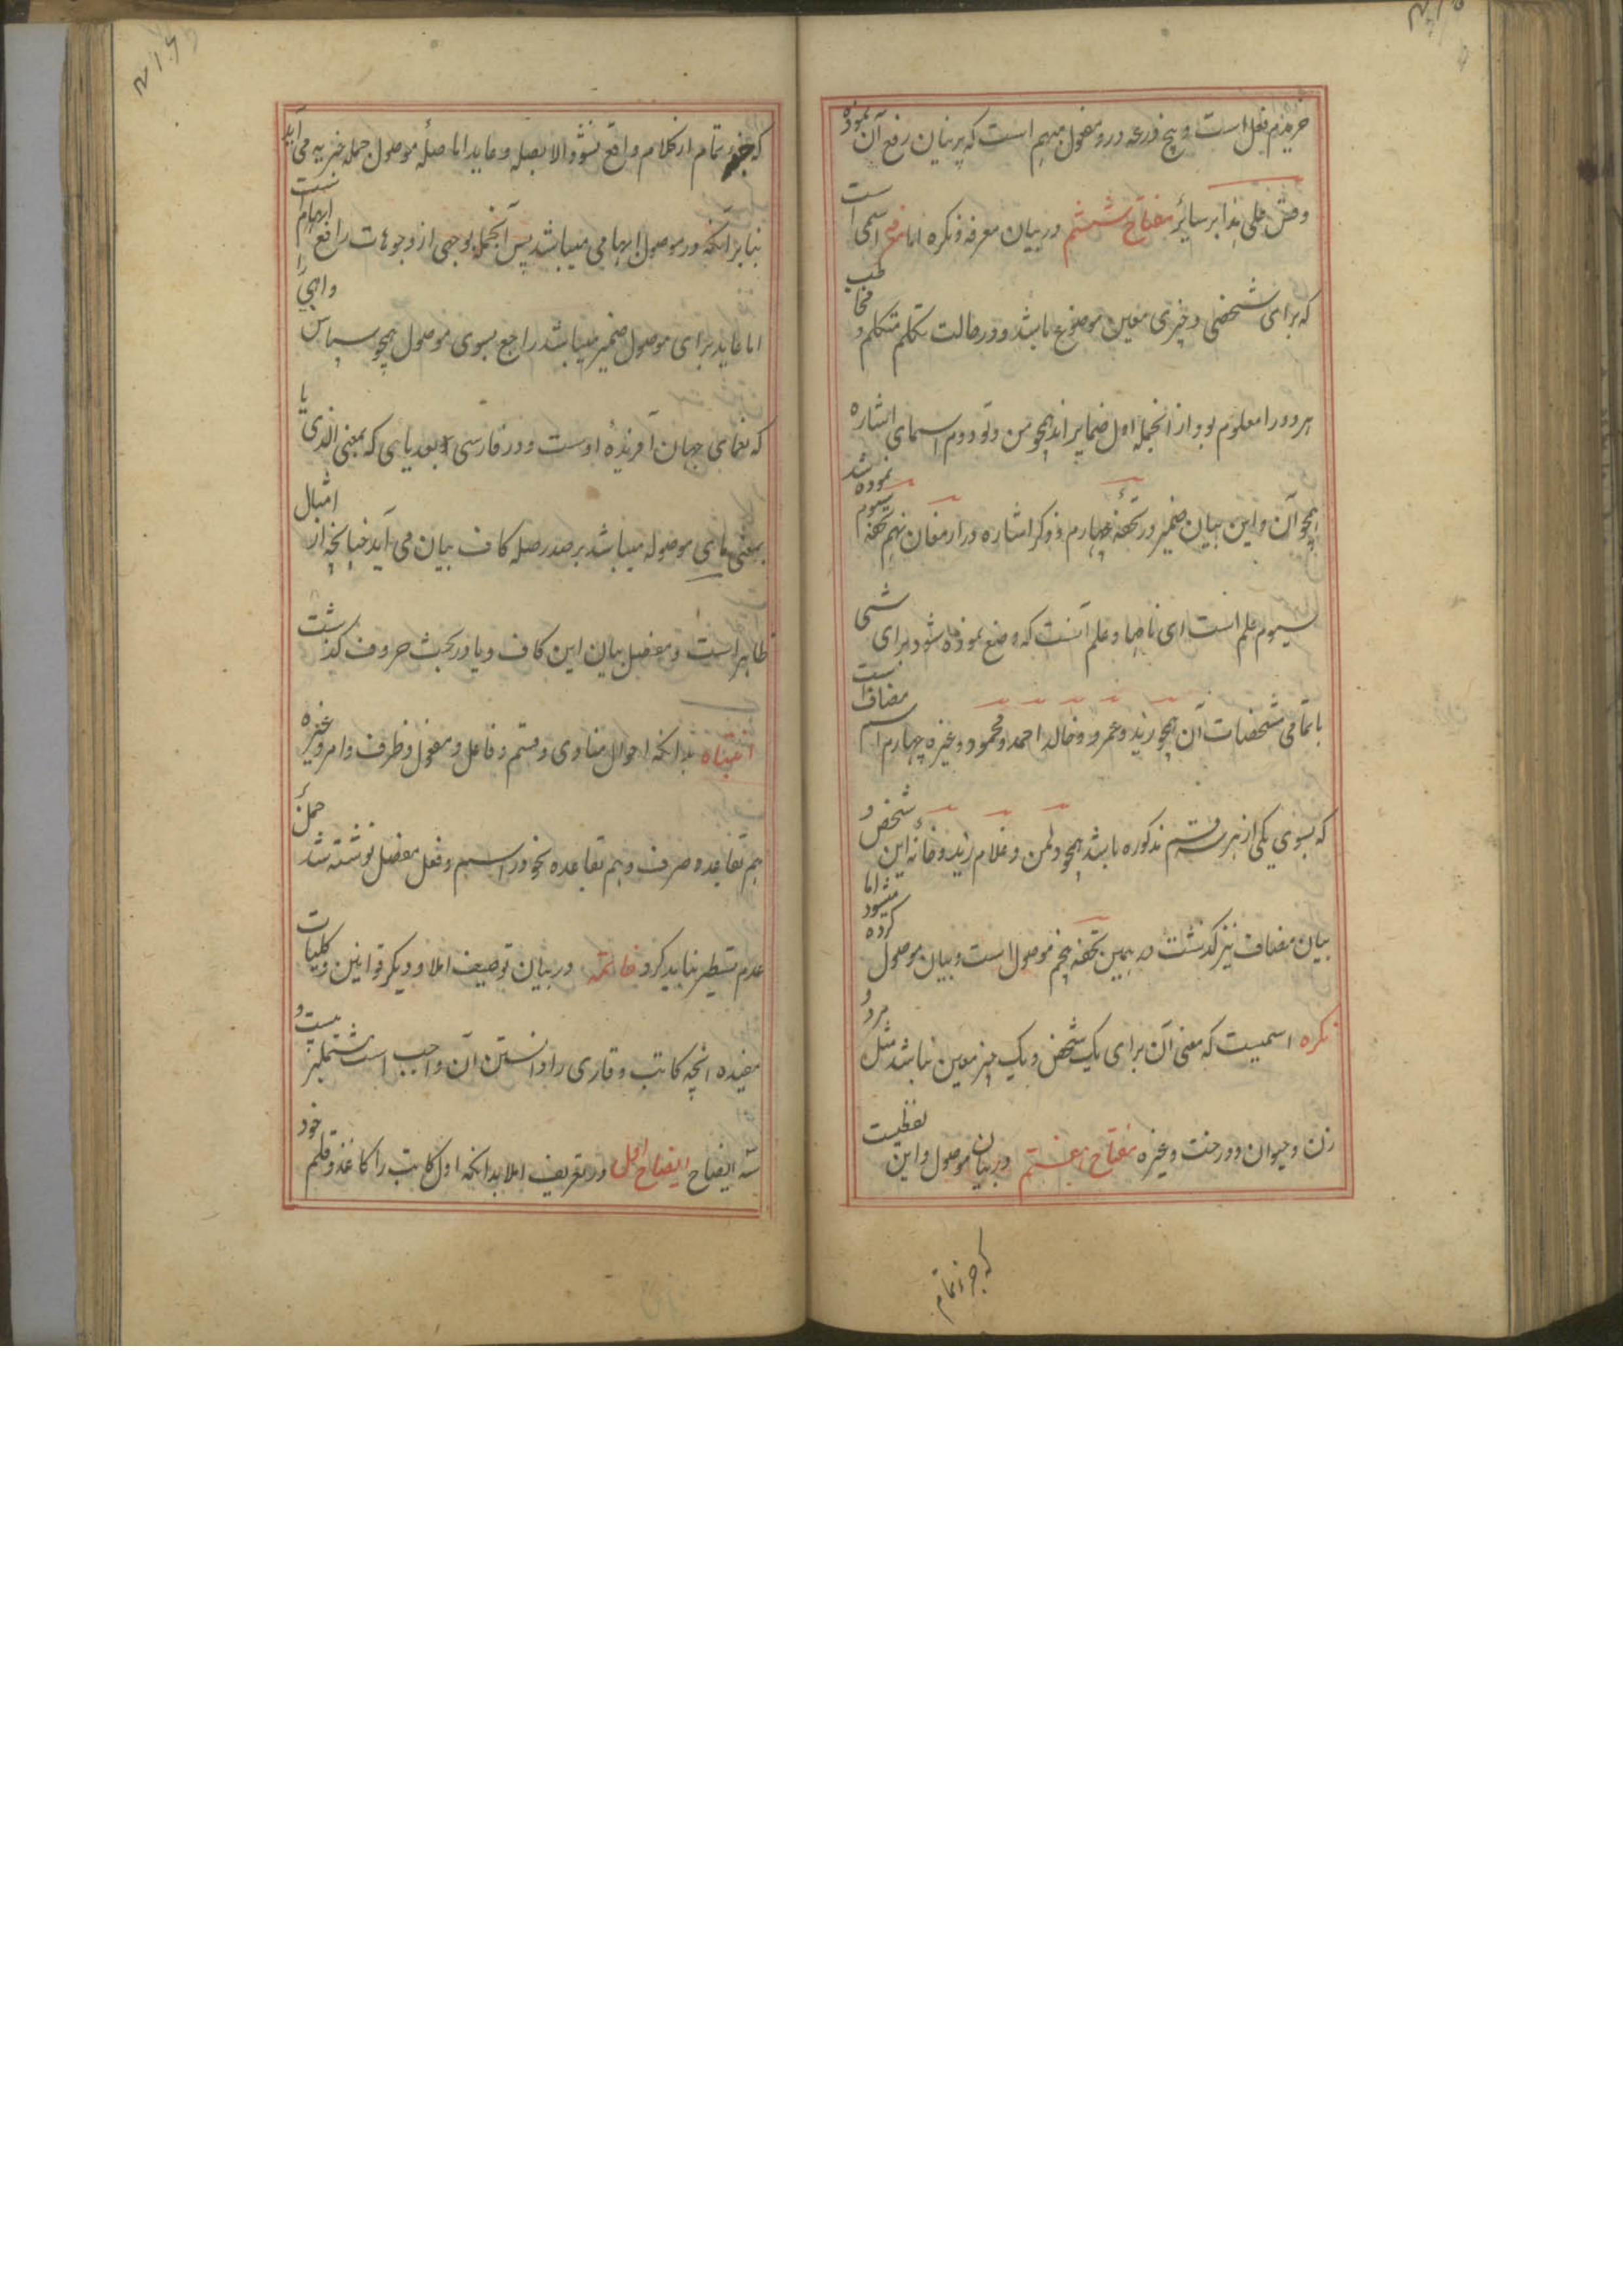 خریدم فعل است و پنج ذرعه درو مفعول مبهم است که پرنیان رفع آن نموده
وقس علی هذا بر سائر مفتاح ششم در بیان معرفه و نکره اما معرفه اسمی است
که برای شخصی و چیزی معین موضوع باشد و در حالت تکلم متکلم و مخاطب
هر دو را معلوم بود از انجمله اول ضمایر اند همچو من و تو دوم اسمای اشاره
همچو آن و این بیان ضمیر در تحفه چهارم و ذکر اشاره در ارمغان نهم تحفه سوم نموده شد
سیوم علم است ای نامها و علم آنست که وضع نموده شود برای شی
با تمامی مشخصات آن همچو زید و عمرو و خالد احمد و محمود و غیره چهارم اسم مضاف است
که بسوی یکی از هر سه قسم مذکوره باشد همچو دلمن و غلام زید و خانه این شخص و
بیان مضاف نیز گذشت در همین تحفه پنجم موصول است و بیان موصول کرده میشود اما
نکره اسمیست که معنی آن برای یک شخص و یک چیز معین نباشد مثل مرد و
زن و حیوان و درخت و غیره مفتاح هفتم در بیان موصول و این لفظیست
که جزو تمام
که جزو تمام از کلام واقع نشود الا بصله و عاید اما صلهٔ موصول جمله خبریه می آید
بنابر آنکه در موصول ابهامی میباشد پس آنجمله بوجهی از وجوهات رافع ابهام است
اما عاید برای موصول ضمیر میباشد راجع بسوی موصول همچو سپاس واهبی را
که نعمای جهان آفریدهٔ اوست و در فارسی بعد یایی که بمعنی الذی یا
بمعنی مای موصوله میباشد بر صدر صله کاف بیان می آید چنانچه از امثال
ظاهر است و مفصل بیان این کاف و یا در بحث حروف گذشت
انتباه بدانکه احوال منادی و قسم و فاعل و مفعول و ظرف و امر و غیره
هم بقاعده صرف و هم بقاعده نحو در اسم و فعل مفصل نوشته شد حمل
عدم تسطیر نباید کرد خاتمه در بیان توصیف املا و دیگر قوانین و کلیات
مفیده انچه کاتب و قاری را دانستن آن واجب است مشتملبر بیست و
سه ایضاح ایضاح اول در تعریف املا بدانکه اول کاتب را کاغذ و قلم خود